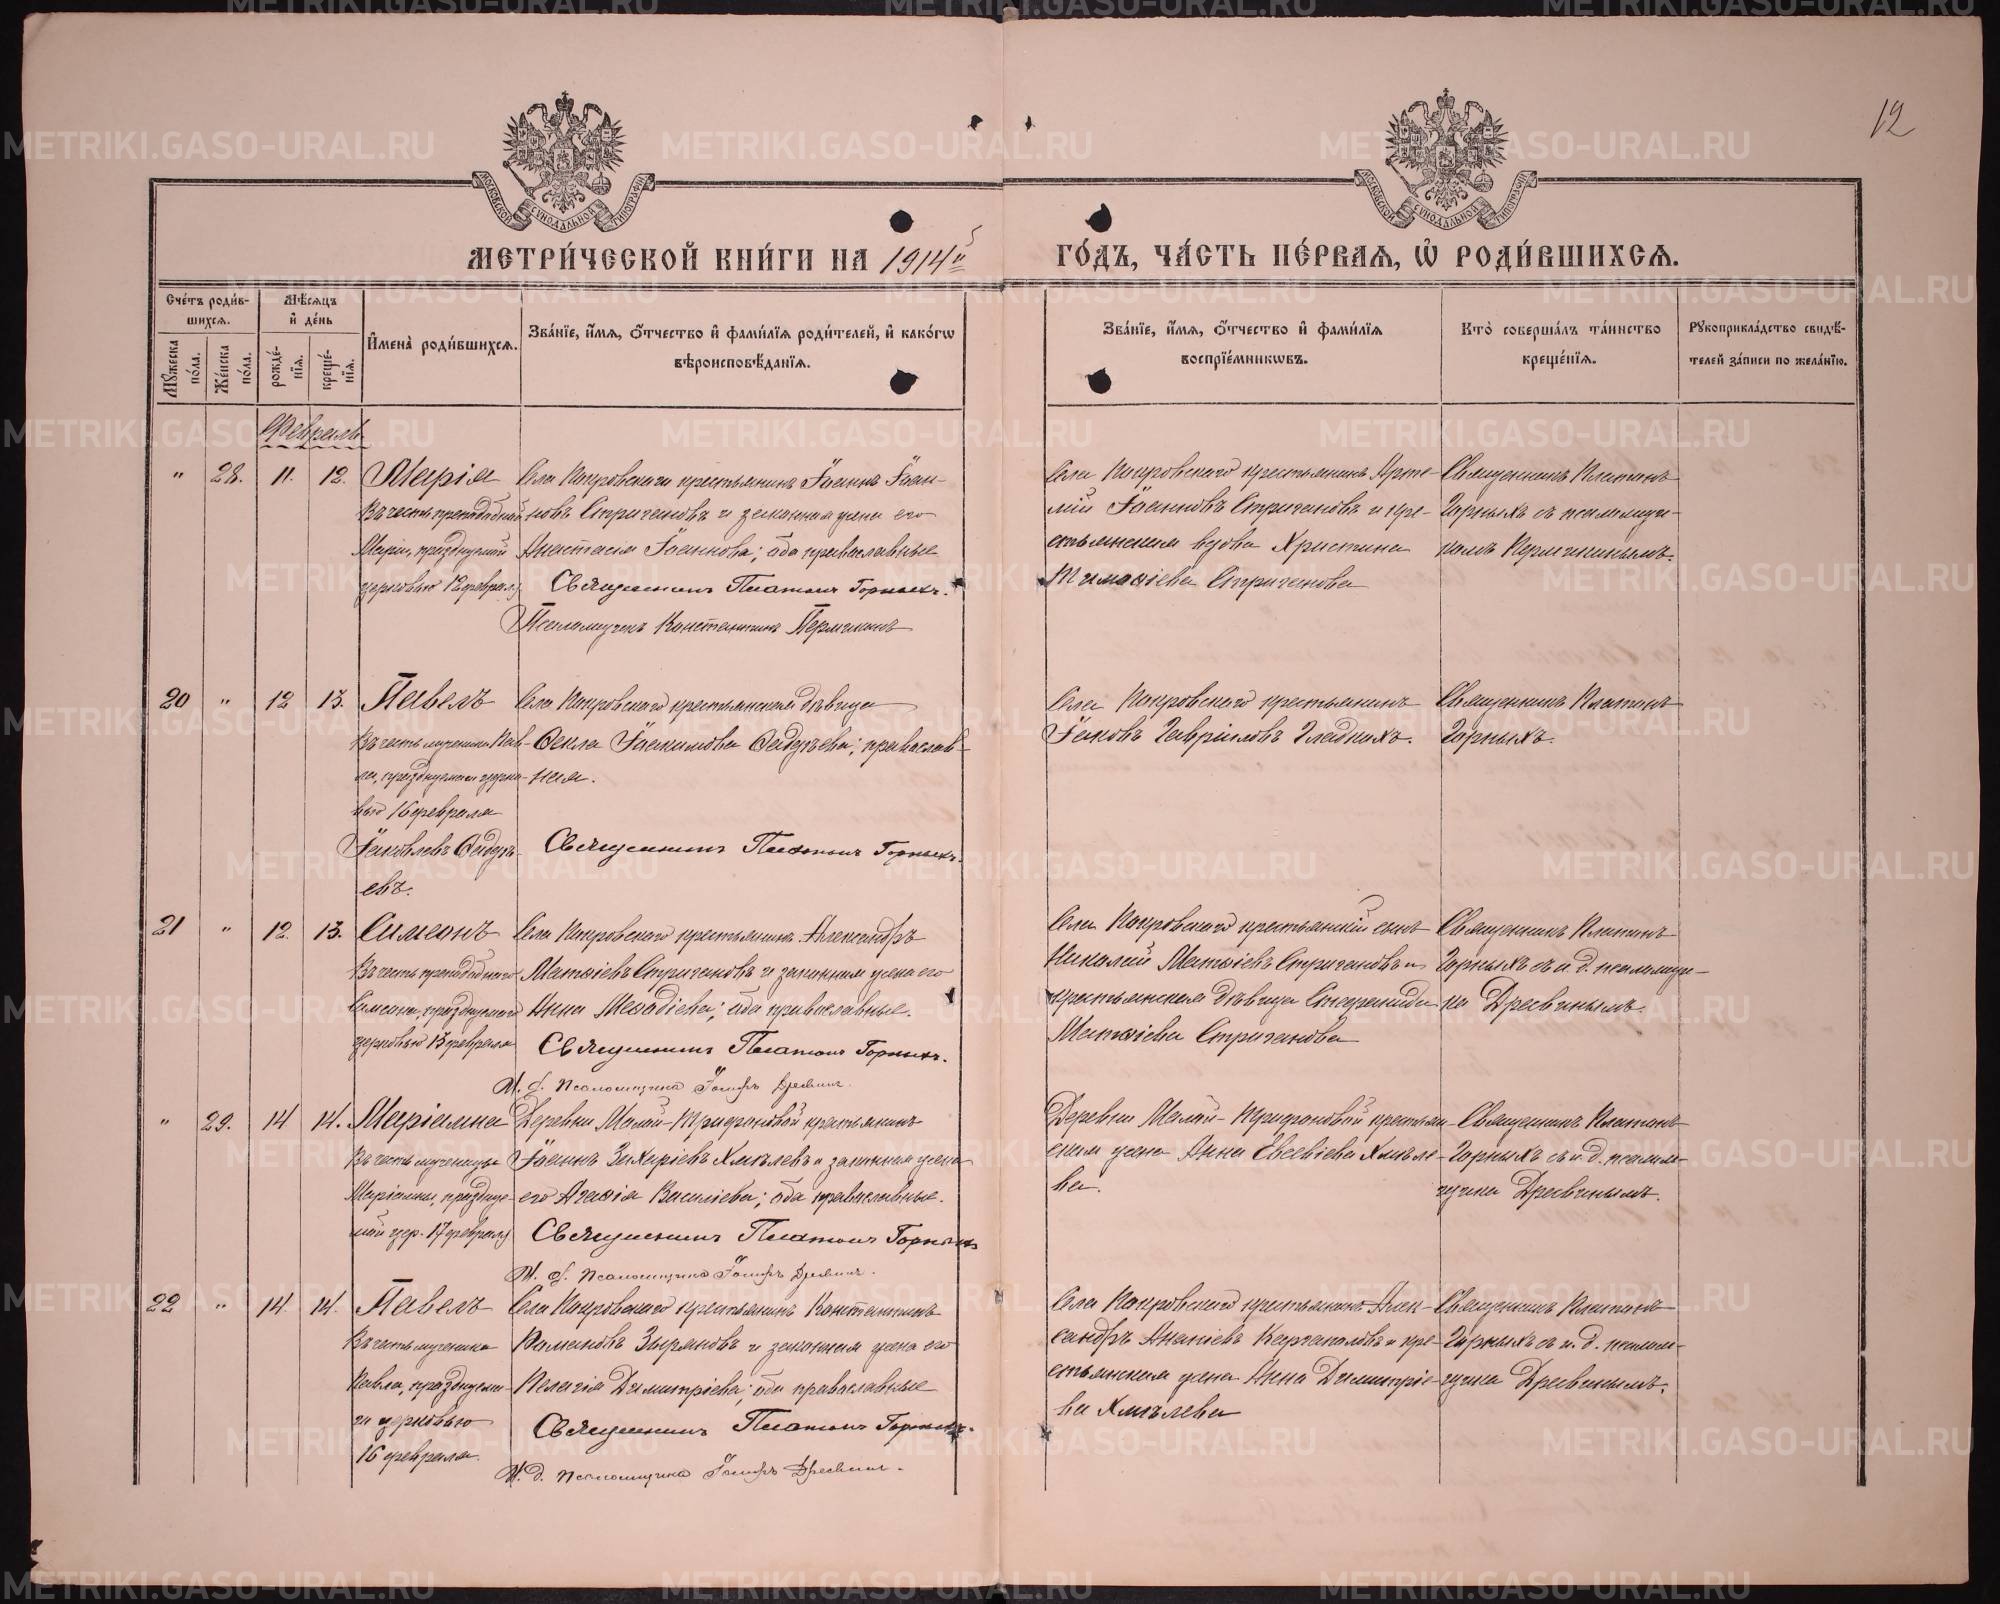 12
МОСКОВСКОЙ СѴНОДАЛЬНОЙ ТИПОГРАФІИ
МОСКОВСКОЙ СѴНОДАЛЬНОЙ ТИПОГРАФІИ
МЕТРИ́ЧЕСКОЙ КНИ́ГИ НА 1914й
ГО́ДЪ, ЧА́СТЬ ПЕ́РВАЯ, Ѡ҆ РОДИ́ВШИХСЯ.
Сче́тъ роди́в-
шихся.
Мѣ́сяцъ
и҆ де́нь
Му́жеска по́ла.
Же́нска по́ла.
рожде́-
нїя.
креще́-
нїя.
И҆мена̀ роди́вшихся.
Зва́нїе, и҆́мя, ѻ҆́тчество и҆ фами́лїя роди́телей, и҆ како́гѡ
вѣроисповѣ́данїя.
Зва́нїе, и҆́мя, ѻ҆́тчество и҆ фами́лїя
воспрїе́мникѡвъ.
Кто̀ соверша́лъ та́инство
креще́нїя.
Рꙋкоприкла́дство свидѣ́-
телей за́писи по жела́нїю.
Февраль
" 28. 11. 12. Марія
Въ честь преподобной
Маріи, празднуемой
церковью 12 февраля
Села Покровского крестьянинъ Іоаннъ Іоан-
новъ Стригановъ и законная жена его
Анастасія Іоаннова; оба православные
Священникъ Платонъ Горныхъ.
Псаломщикъ Константинъ Пермикинъ
Села Покровского крестьянинъ Арте-
мій Іоанновъ Стригановъ и кре-
стьянская вдова Христина
Тимоѳіева Стриганова
Священникъ Платонъ
Горныхъ съ псаломщи-
комъ Пермикинымъ.
20 " 12 13. Павелъ
Въ честь мученика Пав-
ла, празднуемаго церко-
вью 16 февраля
Іаковлевъ Ѳадѣ-
евъ.
Села Покровского крестьянская дѣвица
Ѳекла Іоакимова Ѳадѣева; православ-
ная.
Священникъ Платонъ Горныхъ.
Села Покровского крестьянинъ
Іаковъ Гавріиловъ Гладкихъ.
Священникъ Платонъ
Горныхъ.
21 " 12. 13. Симеонъ
Въ честь преподобного
Симеона, празднуемого
церковью 13 февраля
Села Покровского крестьянинъ Александръ
Матѳіевъ Стригановъ и законная жена его
Анна Меѳодіева; оба православные.
Священникъ Платонъ Горныхъ.
И. д. Псаломщика Іосифъ Дресвинъ.
Села Покровского крестьянскій сынъ
Николай Матѳіевъ Стригановъ и
крестьянская дѣвица Стефанида
Матѳіева Стриганова
Священникъ Платонъ
Горныхъ съ и. д. псаломщи-
ка Дресвинымъ.
" 29. 14 14. Маріамна
Въ честь мученицы
Маріамны, праздуе-
мой цер. 17 февраля
Деревни Малой-Трифоновой крестьянинъ
Іоаннъ Захаріевъ Хмѣлевъ и законная жена
его Агаѳія Василіева; оба православные.
Священникъ Платонъ Горныхъ
И. д. Псаломщика Іосифъ Дресвинъ.
Деревни Малой-Трифоновой крестьян-
ская жена Анна Евсевіева Хмѣле-
ва.
Священникъ Платонъ
Горныхъ съ и. д. псалом-
щика Дресвинымъ.
22 " 14. 14. Павелъ
Въ честь мученика
Павла, празднуема-
го церковью
16 февраля.
Села Покровского крестьянинъ Константинъ
Романовъ Зыряновъ и законная жена его
Пелагія Димитріева; оба православные
Священникъ Платонъ Горныхъ.
И. д. Псаломщика Іосифъ Дресвинъ.
Села Покровского крестьянинъ Алек-
сандръ Ананіевъ Каргаполовъ и кре-
стьянская жена Анна Димитріе-
ва Хмѣлева
Священникъ Платонъ
Горныхъ съ и. д. псалом-
щика Дресвинымъ.
METRIKI.GASO-URAL.RU